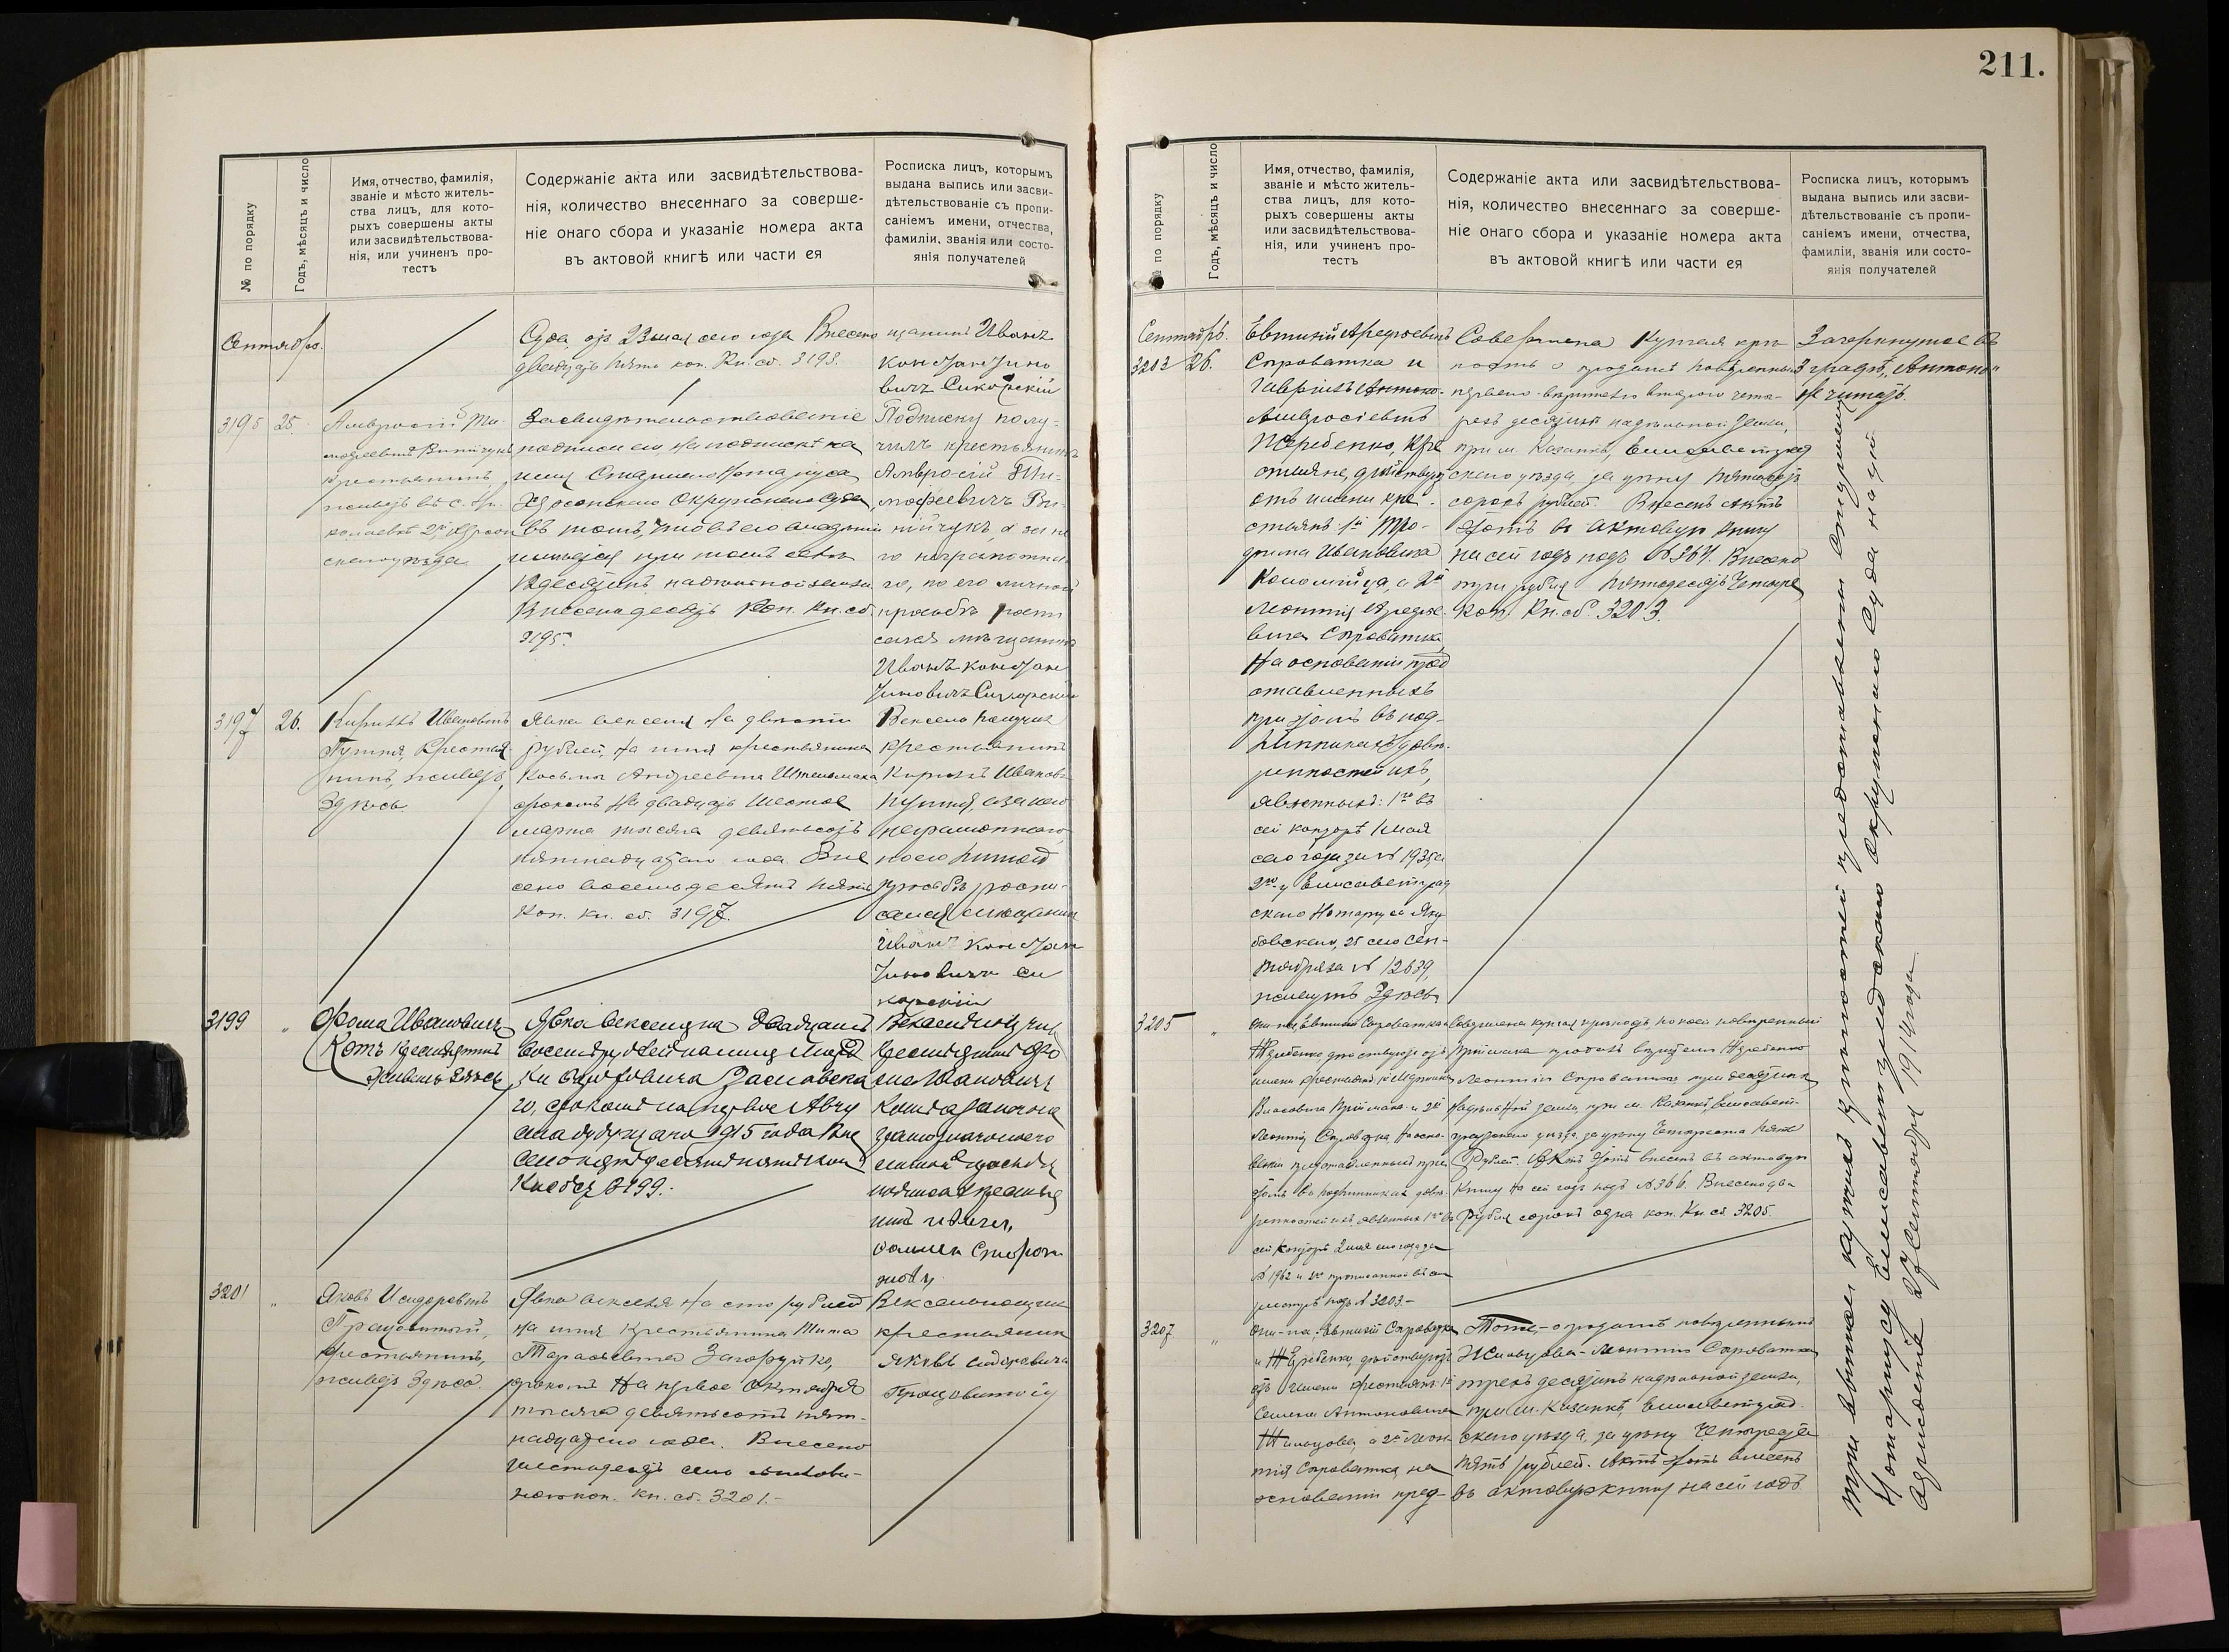 211.
№ по порядку
Годъ, мѣсяцъ и число
Имя, отчество, фамилія,
званіе и мѣсто житель-
ства лицъ, для кото-
рыхъ совершены акты
или засвидѣтельствова-
нія, или учиненъ про-
тестъ
Содержаніе акта или засвидѣтельствова-
нія, количество внесеннаго за соверше-
ніе онаго сбора и указаніе номера акта
въ актовой книгѣ или части ея
Росписка лицъ, которымъ
выдана выпись или засви-
дѣтельствованіе съ пропи-
саніемъ имени, отчества,
фамиліи, званія или состо-
янія получателей
Сентябрь.
Суда, отъ 23 мая сего года Внесено
двадцать пять коп. Кн. сб. 3193.
щанинъ Иванъ
Константино
вичъ Сикорскій
3195 25.
Амвросій Ти-
мофеевичъ
крестьянинъ,
живетъ въ с. Ни-
колаевкѣ 2й Херсон
скаго уѣзда
Засвидѣтельствованіе
подписи его на подпискѣ на
имя Старшаго Нотаріуса
Херсонскаго Окружнаго Суда,
въ томъ, что въ его владѣніи
имѣется при томъ селѣ
десятинъ надѣльной земли.
Внесено десять коп. Кн. сб.
3195.
Подписку полу-
чилъ крестьянинъ
Амвросій Ти-
мофеевичъ
а за не
го неграмотна-
го, по его личной
просьбѣ роспи
сался мѣщанинъ
Иванъ Констан
тиновичъ Сикорскій
3197 26.
Кириллъ Ивановичъ
крестья
нинъ, живетъ
Здѣсь
Явка векселя на двѣсти
рублей, на имя крестьянина
Косьмы Андреевича
срокомъ на двадцать шестое
марта тысяча девятьсотъ
пятнадцатаго года. Вне
сено восемьдесятъ пять
коп. Кн. сб. 3197.
Вексель получилъ
крестьянинъ
Кириллъ Иванов.
а за него
неграмотнаго,
по его личной
просьбѣ роспи-
сался мѣщанинъ
Иванъ Констан
тиновичъ Си
корскій
3199 "
Фома Ивановичъ
Котъ крестьянинъ
Живетъ Здѣсь
Явка векселя на двадцать
восемь рублей на имя
Заславска
го, срокомъ на первое Авгу
ста 1915 года Вне
сено пятьдесятъ пять коп
Кн сб 3199.-
Вексель получилъ
крестьянинъ Фо
ма Ивановичъ
Котъ а за него не
грамотнаго
личной просьбѣ
подписался крестья
нинъ
3201 "
Яковъ Исидоровичъ
крестьянинъ,
живетъ Здѣсь.
Явка векселя на сто рублей
на имя Крестьянина Тита
Тарасьевича Загоруйко,
срокомъ на первое Октября
тысяча девятьсотъ пят-
надцатаго года. Внесено
шестьдесятъ семь съ полови-
ною коп. Кн. сб. 3201.-
Вексель получилъ
крестьянинъ
Яковъ Сидоровичъ
№ по порядку
Годъ, мѣсяцъ и число
Имя, отчество, фамилія,
званіе и мѣсто житель-
ства лицъ, для кото-
рыхъ совершены акты
или засвидѣтельствова-
нія, или учиненъ про-
тестъ
Содержаніе акта или засвидѣтельствова-
нія, количество внесеннаго за соверше-
ніе онаго сбора и указаніе номера акта
въ актовой книгѣ или части ея
Росписка лицъ, которымъ
выдана выпись или засви-
дѣтельствованіе съ пропи-
саніемъ имени, отчества,
фамиліи, званія или состо-
янія получателей
Сентябрь.
3203 26.
Евтихій Арефьевичъ
Сыроватка и
Гавріилъ Антоно-
Амвросіевичъ
Жеребенко, кре
стьяне, дѣйствуютъ
отъ имени кре-
стьянъ: 1й Тро-
фима Ивановича
Коломійца, а 2й
Леонтія Арефье-
вича Сыроватка,
На основаніи пред
ставленныхъ
при этомъ въ под-
линникахъ довѣ-
ренностей ихъ,
явленныхъ: 1го въ
сей конторѣ 1 мая
сего года за № 1935, а
2го у Елисаветград
скаго Нотаріуса Яку
бовскаго, 25 сего Сен-
тября за № 12639,
живутъ Здѣсь
Совершена Купчая крѣ-
пость о продажѣ повѣренными
перваго вѣрителю втораго четы-
рехъ десятинъ надѣльной земли,
при м. Казанкѣ, Елисаветград
скаго уѣзда, за цѣну пятьсотъ
сорокъ рублей. Внесенъ актъ
этотъ въ актовую книгу
на сей годъ подъ № 364. Внесено
три рубля пятьдесятъ четыре
коп. Кн. сб. 3203.
Зачеркнутое въ
3 графѣ: "Антоно"
не читать.
3205 "
Они-же, Евтихій Сыроватка и
Жеребенко, дѣйствуютъ отъ
имени крестьянъ: 1й
Власовича Пріймака и 2й
Леонтія Сыроватка, На осно-
ваніи представленныхъ при
этомъ въ подлинникахъ довѣ-
ренностей ихъ, явленныхъ 1го въ
сей Конторѣ 2 мая сего года за
№ 1962 и 2го прописанной въ семъ
реестрѣ подъ № 3203.-
Совершена купчая крѣпость, по коей повѣренный
Пріймака продалъ вѣрителю Жеребенко
Леонтію Сыроватка три десятины
надѣльной земли, при м. Казанкѣ, Елисавет-
градскаго уѣзда, за цѣну Четыреста пять
рублей. Актъ этотъ внесенъ въ актовую
Книгу на сей годъ подъ № 366. Внесено два
рубля сорокъ одна коп. Кн. сб. 3205.
3207 "
Они-же, Евтихій Сыроватка
и Жеребенко, дѣйствуютъ
отъ имени крестьянъ: 1й
Семена Антоновича
а 2й Леон-
тія Сыроватка, на
основаніи пред-
Тоже,-о продажѣ повѣреннымъ
Леонтію Сыроватка
трехъ десятинъ надѣльной земли,
при м. Казанкѣ, Елисаветград
скаго уѣзда, за цѣну Четыреста
пять рублей. Актъ этотъ внесенъ
въ актовую книгу на сей годъ
Три явныхъ купчихъ крѣпостей представлены Старшему
Нотаріусу Елисаветградскаго Окружнаго Суда на
27 Сентября 1914 года.